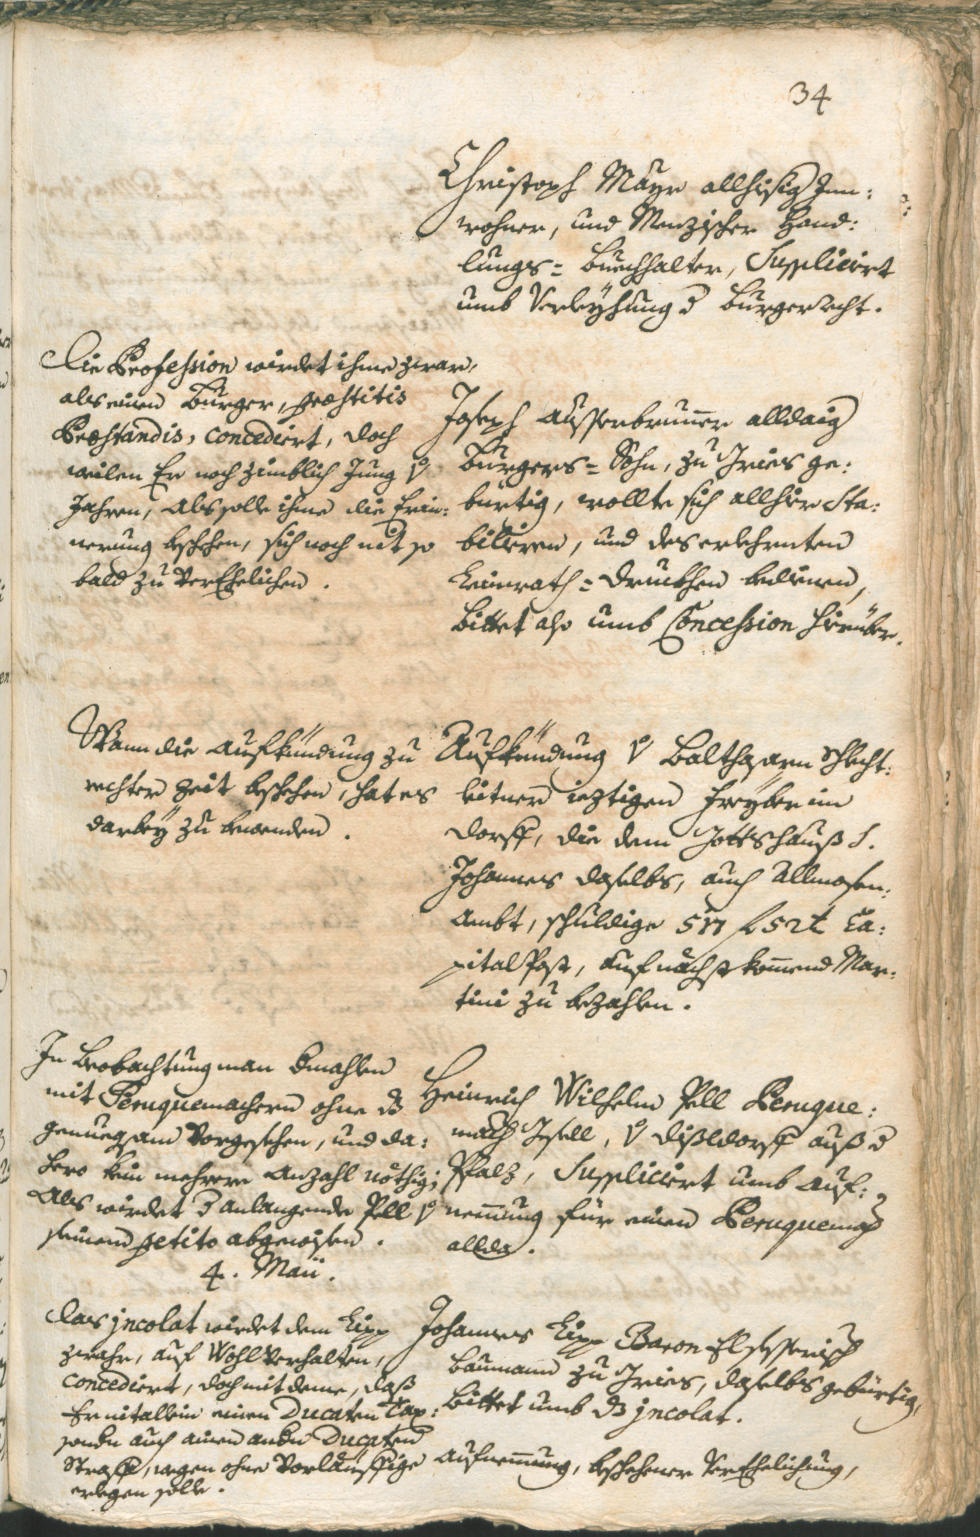 34
Christoph Mayr allhisig Inn:
wohner, und Menzischer Hand:
lungs= Buechhalter, Supplicirt
umb Verleyhung d Burgerrecht.
Die Profession wirdet ihme zwar,
als einen Burger, præstitis
Præstandis, concediert, doch
weilen Er noch zimblich Jung v
Jahren, als solle ihme die Erin:
nerung beschehen, sich noch nit so
bald zu Verehelichen.
Joseph Aussenbrunner alldaig
Burgers= Sohn, zu Gries ge:
bürtig, wollte sich allhier sta:
biliren, und des erlehrnten
Leinwath= Druckhen bedienen,
bittet also umb Concession hierüber.
Wann die Aufkündung zu
rechter Zeit beschehen, hat es
darbey zu bewenden.
Aufkündung v Balthasarn Schlecht:
leitner ieztigen Freyber im
Dorff, die dem Gottshauß S.
Johannes daselbs, auch Allmosen:
Ambt, schuldige 517 f 52 t Ca:
pital Post, auf nächst kommend Mar:
tini zu bezahlen.
In Beobachtung man dmahlen
mit Peruquemachern ohne ds
genuegsam Vorgesehen, und da:
hero kein mehrere Anzahl nöthig;
Als wirdet d anlangende Pell v
seinem petito abgewisen.
Heinrich Wilhelm Pell Peruque:
mach Gsell, v Dißldorff auß d
Pfalz, Supplicirt umb Auf:
nemmung für einen Peruquemach
allda.
4. Maii.
Das jncolat wirdet dem Lipp
zwahr, auf Wohlverhalten,
concediert, doch mit deme, daß
Er nit allein einen Ducaten Tax:
sondn auch ainen andn Ducaten
Straff, wegen ohne Vorläuffige
erlegen solle.
Johannes Lipp Baron
Baumann zu Gries, daselbs gebürtig,
bittet umb ds jncolat.
Aufnemmung, beschehener Verehelichung,